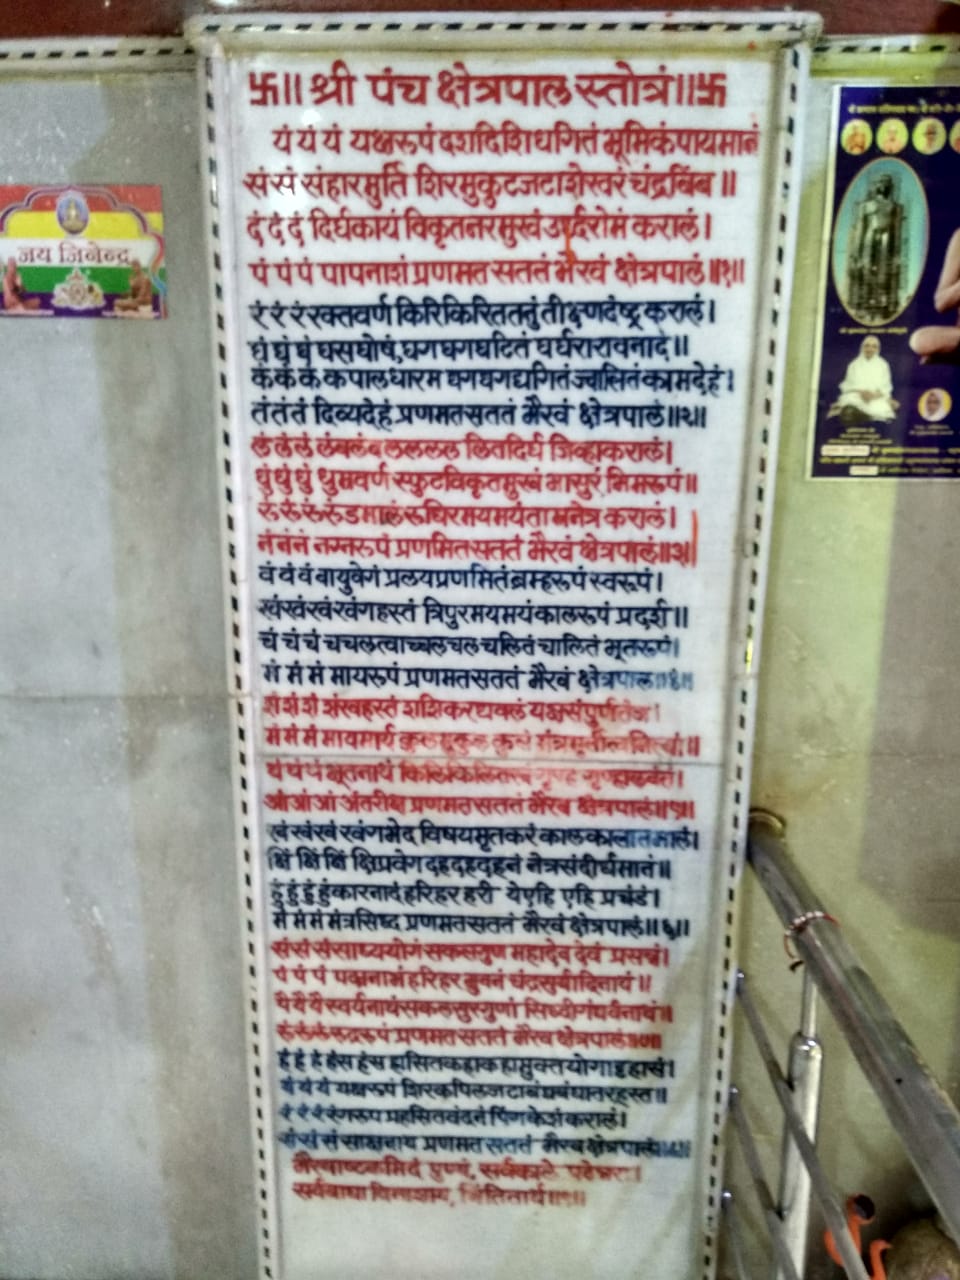 卐॥ श्री पंच क्षेत्रपाल स्तोत्रं॥卐
यं यं यं यक्षरूपं दशदिशिधगितं भूमिकंपायमानं
सं सं संहारमुर्ति शिरमुकुटजटाशेखरं चंद्रबिंब ॥
दं दं दं दिर्घकायं विकृतनरमुखं उर्ध्दरोमं करालं।
पं पं पं पापनाशं प्रणमत सततं भैरवं क्षेत्रपालं॥१॥
रं रं रं रक्तवर्ण किरिकिरितततुं तीक्षणदंष्ट्र करालं।
घं घं घं घसघोषं, घगघगघटितं घर्घरारावनादे॥
कं कं कं कपालधारम घगघगद्यगितं ज्वालितं कामदेहं।
तं तं तं दिव्यदेहं प्रणमत सततं भैरवं क्षेत्रपालं॥२॥
लं लं लं लंबलंब लललल लितदिर्घ जिव्हाकरालं।
धुं धुं धुं धुम्रवर्ण स्फुटविकृतमुखं भासुरं भिमरूपं॥
रूं रूं रूं रूंडमालं रूधिरमयमयंताम्रनेत्र करालं।
नं नं नं नग्नरूपं प्रणमित सततं भैरवं क्षेत्रपालं॥३॥
वं वं वं वायुवेगं प्रलयप्रणमितं ब्रम्हरूपं स्वरूपं।
खं खं खं खंगहस्तं त्रिपुरमयमयं कालरूपं प्रदर्श॥
चं चं चं चचलत्वाच्चलचल चलितं चालितं भूतरूपं।
मं मं मं मायरूपं प्रणमत सततं भैरवं क्षेत्रपाल॥४॥
शं शं शं शंखहस्तं शशिकरधवलं यक्षसंपुर्णतेज।
मं मं मं मायमायं
यं यं यं भूतनाथं किलिकिलितवं
आं आं आं अंतरीक्ष प्रणमत सततं भैरव क्षेत्रपालं॥५॥
खं खं खं खंगभेद विषयमृतकरं कालकालातमालं।
क्षिं क्षिं क्षिं क्षिप्रवेग दहदहदहनं नेत्रसंदीर्घमानं॥
हुं हुं हुं हुंकारनादं हरिहर हरी येएहि एहि प्रचंडं।
मं मं मं मंत्रसिध्द प्रणमत सततं भैरवं क्षेत्रपालं॥६॥
सं सं सं साध्ययोगं सकलगुण महादेव देवं प्रसन्नं।
पं पं पं पद्मनाभं हरिहर भुवनं चंद्रसुर्यादिनाथं॥
यै यै यै स्वर्यनाथं सकलसुरगुणां सिध्दीगंधर्वनाथं॥
रूं रूं रूं रूद्ररूपं प्रणमत सततं भैरव क्षेत्रपालं॥७॥
हं हं हं हंस हंस हासितकहाकहामुक्तयोगाट्टहासं।
यं यं यं यक्षरूपं शिरकपिलजटाबंधबंधातरहस्त॥
रं रं रं रंगरूप प्रहसितवंदनं पिंगकेशंकरालं।
सं सं सं साक्षनाथ प्रणमत सततं भैरव क्षेत्रपालं॥८॥
भैरवाष्टकमिदं पुण्यं, सर्वकाले पठेन्नरः।
सर्वबाधा विनाशाय, चिंतितार्थ॥९॥
जय जिनेन्द्र